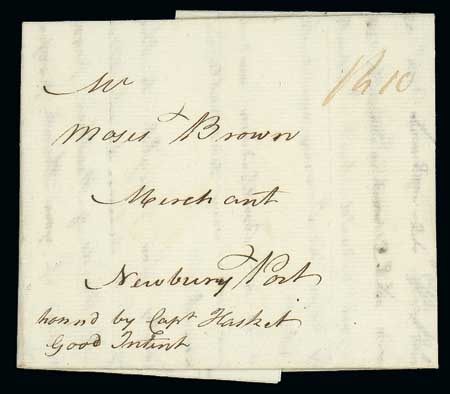 Mr
Sh 10
Moses Brown
Merchant
Newbury Port
honod by Capt Hasket
Good Intent